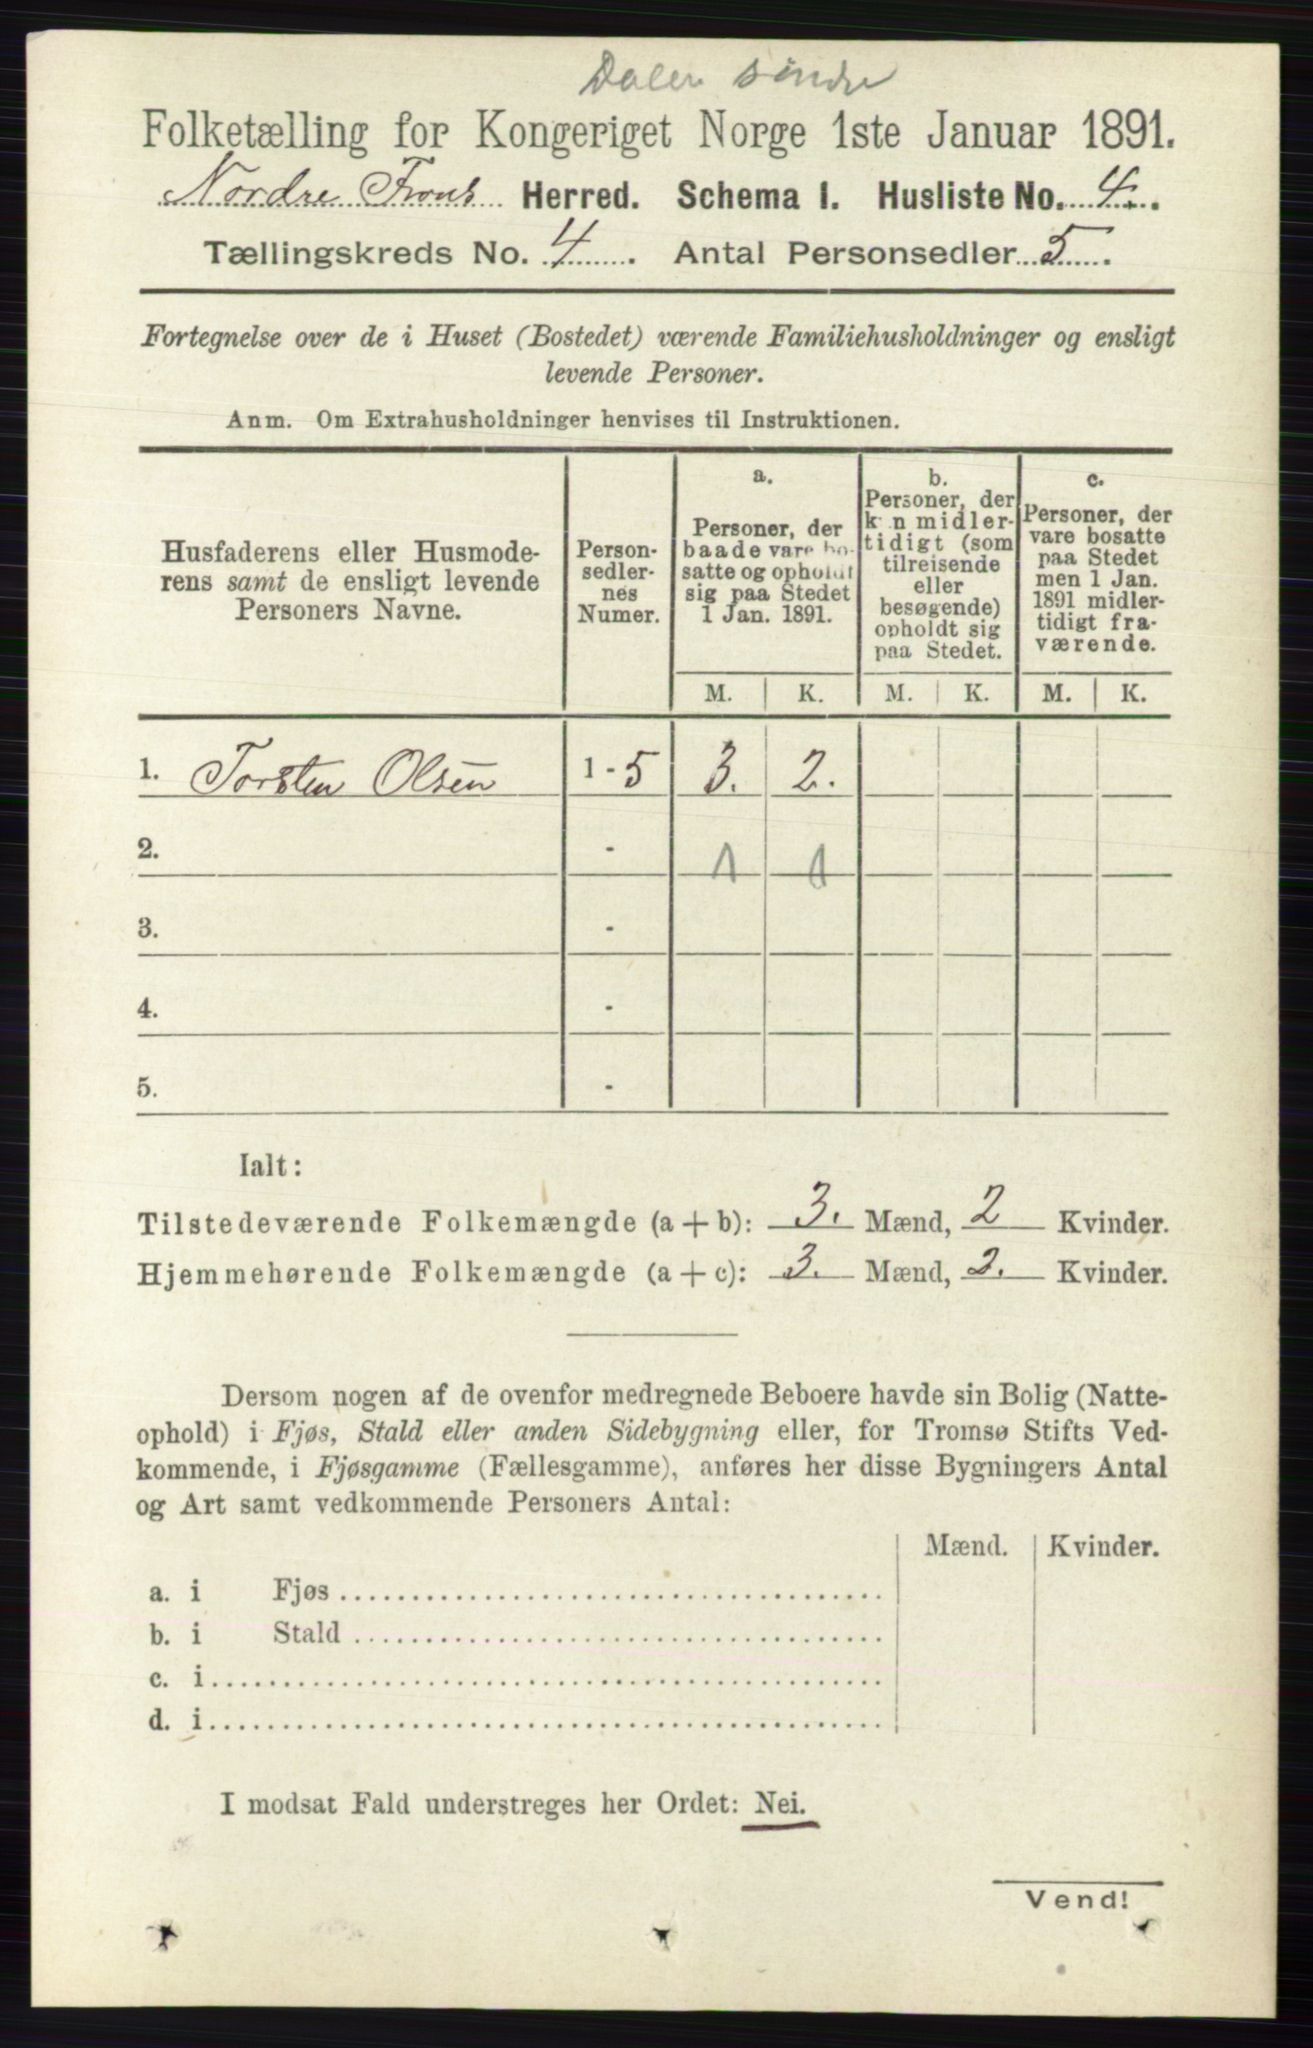 Dalen søndre
Folketælling for Kongeriget Norge 1ste Januar 1891.
Nordre Frons Herred. Schema I. Husliste No. 4.
Tællingskreds No. 4. Antal Personsedler 5.
Fortegnelse over de i Huset (Bostedet) værende Familiehusholdninger og ensligt
levende Personer.
Anm. Om Extrahusholdninger henvises til Instruktionen.
Husfaderens eller Husmode-
rens samt de ensligt levende
Personers Navne.
Person-
sedler-
nes
Numer.
a.
Personer, der
baade vare bo-
satte og opholdt
sig paa Stedet
1 Jan. 1891.
b.
Personer, der
kun midler-
tidigt (som
tilreisende
eller
besøgende)
opholdt sig
paa Stedet.
c.
Personer, der
vare bosatte
paa Stedet
men 1 Jan.
1891 midler-
tidigt fra-
værende.
M. K. M. K. M. K.
1. Torsten Olsen 1 - 5 3. 2.
2. - 1 1
3. -
4. -
5. -
Ialt:
Tilstedeværende Folkemængde (a + b): 3. Mænd, 2 Kvinder.
Hjemmehørende Folkemængde (a + c): 3. Mænd, 2. Kvinder.
Dersom nogen af de ovenfor medregnede Beboere havde sin Bolig (Natte-
ophold) i Fjøs, Stald eller anden Sidebygning eller, for Tromsø Stifts Ved-
kommende, i Fjøsgamme (Fællesgamme), anføres her disse Bygningers Antal
og Art samt vedkommende Personers Antal:
Mænd. Kvinder.
a. i Fjøs
b. i Stald
c. i
d. i
I modsat Fald understreges her Ordet: Nei.
Vend!